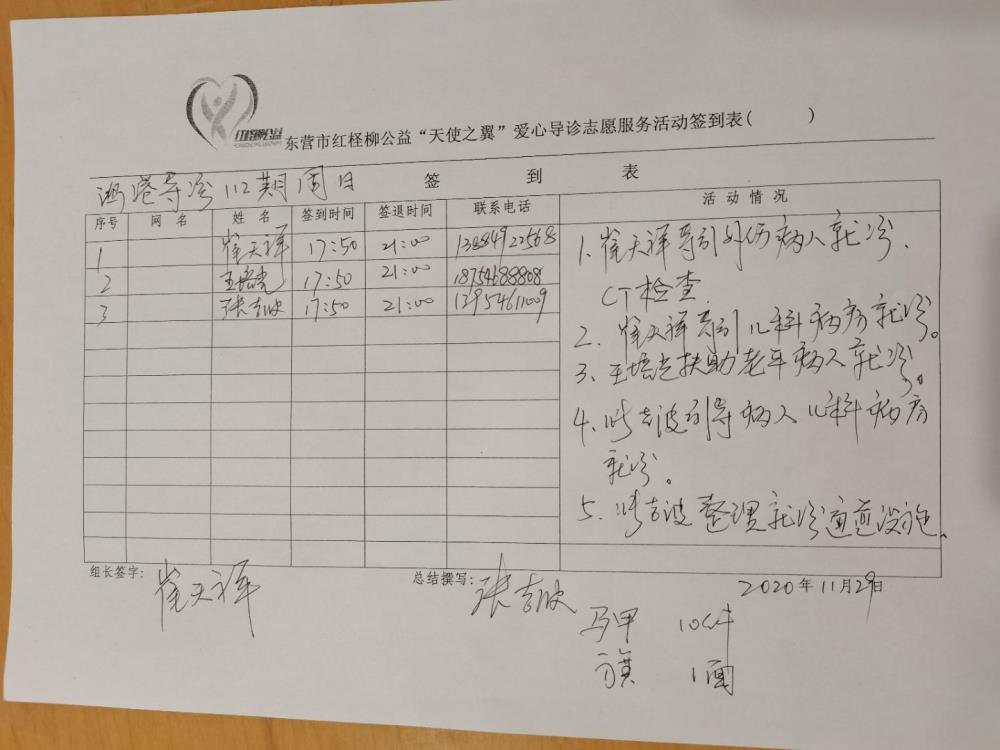 红柽柳公益
东营市红柽柳公益“天使之翼”爱心导诊志愿服务活动签到表( )
导诊112期周日 签 到 表
序号 网 名 姓 名 签到时间 签退时间 联系电话 活 动 情 况
1 崔天祥 17:50 21:00
2 王培光 17:50 21:00 18754688808
3 张吉波 17:50 21:00 13954611009
1.崔天祥导引外伤病人就诊、
CT检查
2、崔天祥导引儿科病房就诊。
3、王培光扶助老年病人就诊。
4、张吉波引导病人儿科病房
就诊。
5、张吉波整理就诊通道设施。
组长签字: 崔天祥 总结撰写: 张吉波 2020年11月29日
马甲 10件
旗 1面